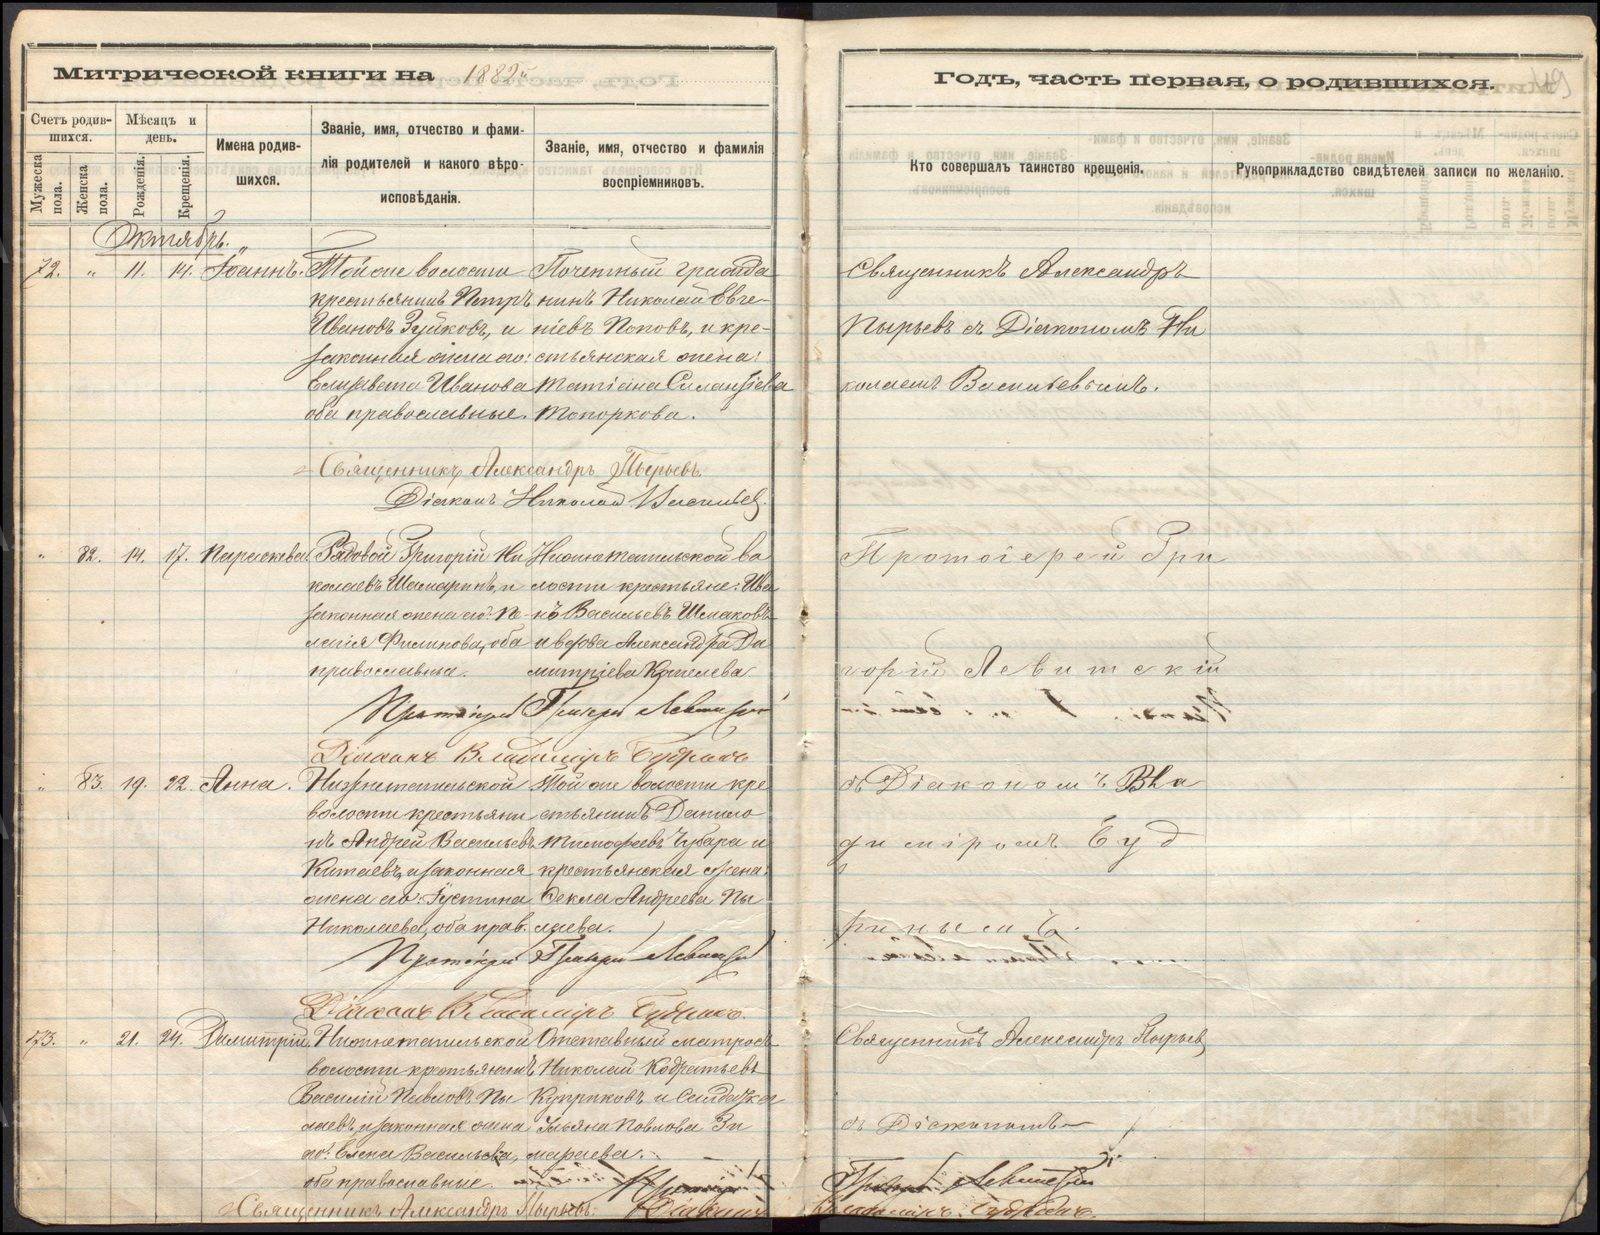 Митрической книги на 1882й
Годъ, часть первая, о родившихся.
Счетъ родив-
шихся.
Мѣсяцъ и
день.
Мужеска
пола.
Женска
пола.
Рожденія.
Крещенія.
Имена родив-
шихся.
Званіе, имя, отчество и фами-
лія родителей и какого вѣро-
исповѣданія.
Званіе, имя, отчество и фамилія
воспріемниковъ.
Кто совершалъ таинство крещенія.
Рукоприкладство свидѣтелей записи по желанію.
Октябрь.
72. " 11. 14. Іоаннъ.
Той же волости
крестьянинъ Петръ
Ивановъ Зуйковъ, и
законная жена его:
Елизавета Иванова
оба православные.
Почетный гражда
нинъ Николай Евге-
ніевъ Поповъ, и кре-
стьянская жена:
Татіана
Топоркова.
Священникъ Александръ
Пырьевъ съ Діакономъ Ни
колаемъ Васильевымъ.
Священникъ Александръ Пырьевъ
Діаконъ Николай Васильев
" 82. 14. 17. Параскева.
Рядовой Григорій Ни
колаевъ Шамаринъ, и
законная жена его: Пе
лагія Филипова, оба
православны.
Нижнетагильской во
лости крестьяне: Ива
нъ Васильевъ Шмаковъ
и вдова Александра Ди
митріева
Протоіерей Гри
горій Левитскій
Протоіерей Григорій Левитскій
Діаконъ Владиміръ
" 83. 19. 22. Анна.
Нижнетагильской
волости крестьяни
нъ Андрей Васильевъ
Китаевъ, и законная
жена его: Іустина
Николаева, оба прав.
Той же волости кре
стьянинъ Данило
Тимофеевъ Чубара и
крестьянская жена:
Фекла Андреева Пы
лаева.
съ Діакономъ Вла
диміромъ Буд
ринымъ.
Протоіерей Григорій Левитскій
Діаконъ Владиміръ
73. " 21. 24. Димитрій.
Нижнетагильской
волости крестьянинъ
Василій Павловъ Пы
лаевъ, и законная жена
его: Елена Васильева,
оба православные.
Отставный матросъ
Николай Кодратьевъ
Куприковъ и
Ульяна Павлова
Священникъ Александръ Пырьев
съ Діакономъ
Священникъ Александръ Пырьевъ.
Протоіерей Григорій Левитскій
Діаконъ Владиміръ